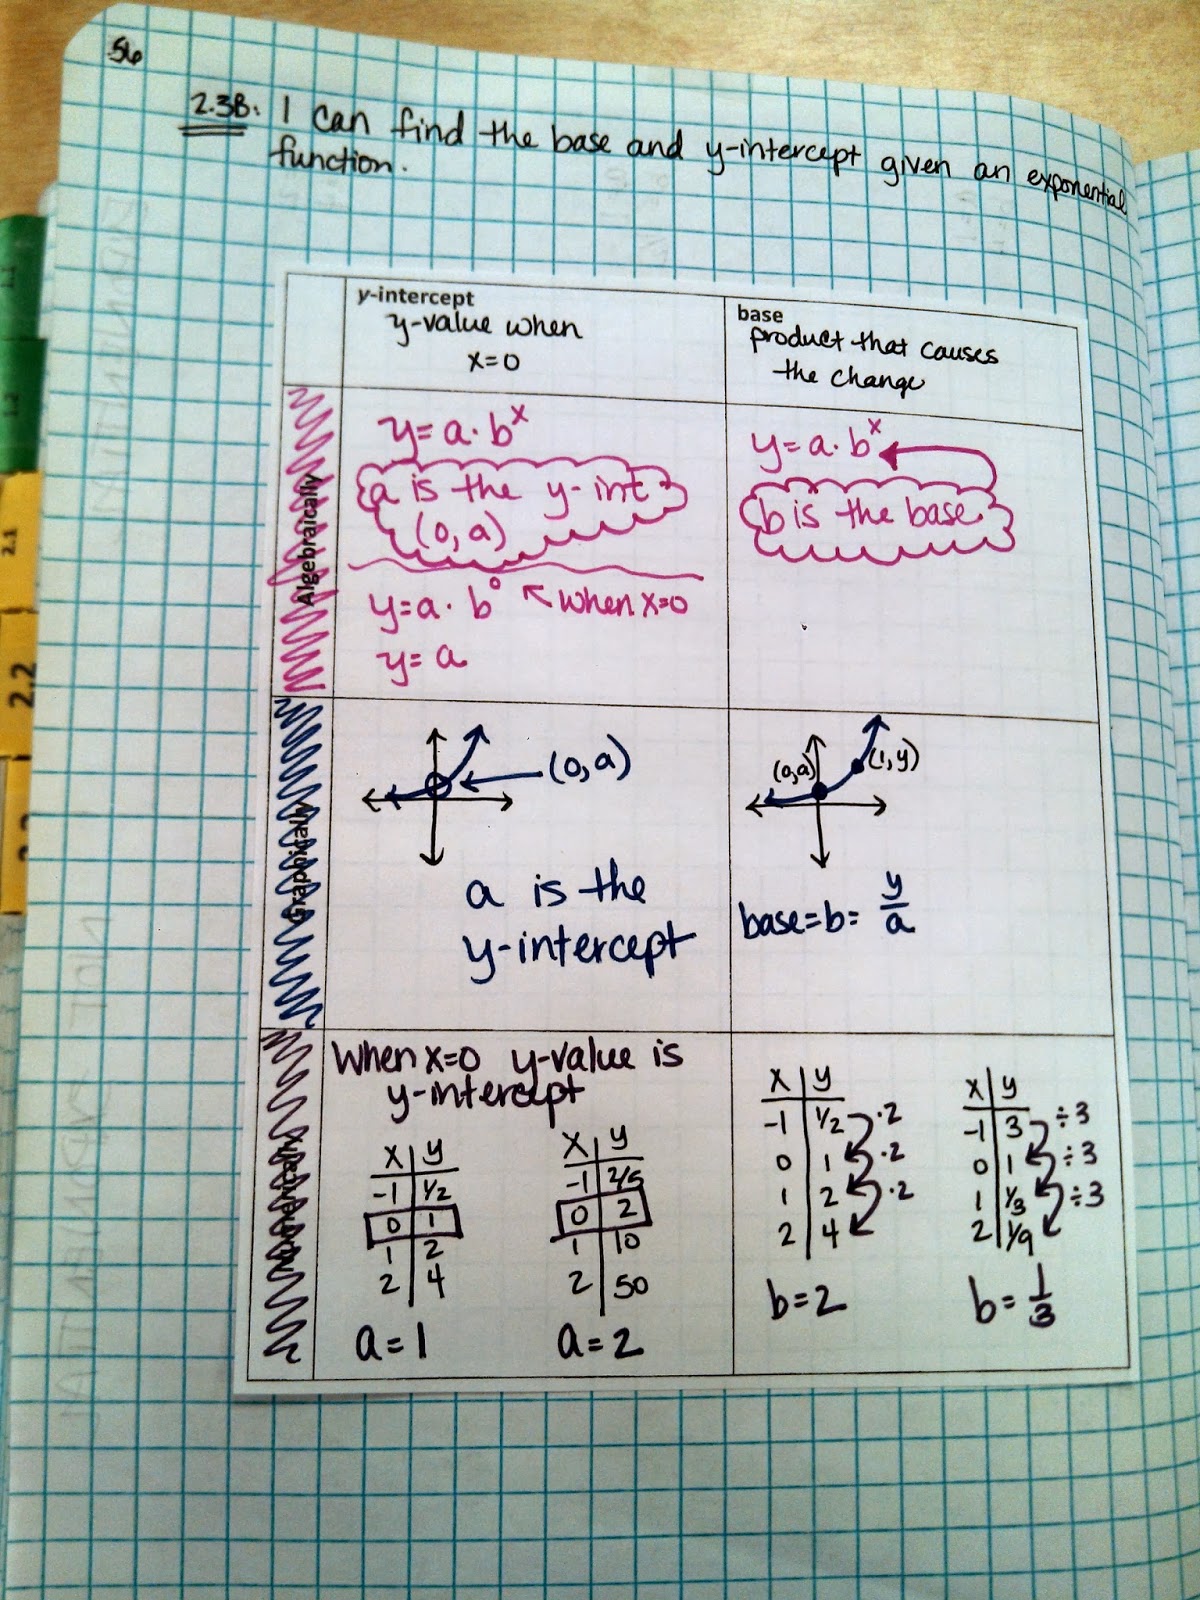 56
2.3B: I can find the base and y-intercept given an exponential
function.
y-intercept
y-value when
x=0
base
product that causes
the change
Algebraically
y=a·bˣ
a is the y-int
(0,a)
y=a·b⁰ when x=0
y=a
y=a·bˣ
b is the base
Graphically
(0,a)
a is the
y-intercept
(0,a) (1,y)
base=b= y/a
Numerically
When x=0 y-value is
y-intercept
x y
-1 1/2
0 1
1 2
2 4
a=1
x y
-1 2/5
0 2
1 10
2 50
a=2
x y
-1 1/2 ·2
0 1 ·2
1 2 ·2
2 4
b=2
x y
-1 3 ÷3
0 1 ÷3
1 1/3 ÷3
2 1/9
b= 1/3
1.1
1.2
2.1
2.2